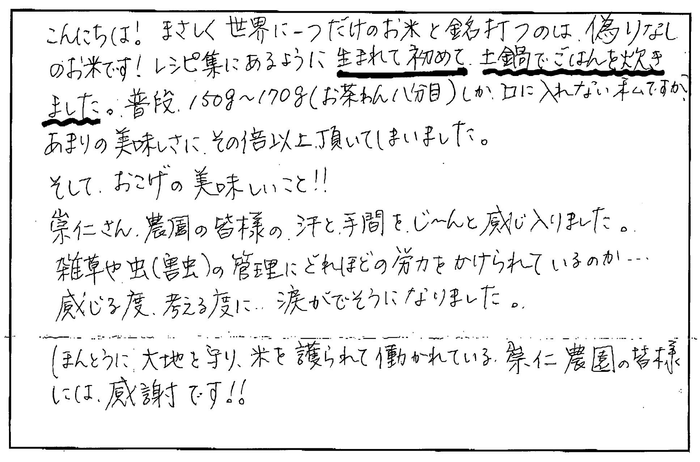 こんにちは! まさしく世界に一つだけのお米と銘打つのは、偽りなし
のお米です! レシピ集にあるように 生まれて初めて、土鍋でごはんを炊き
ました。普段、150g〜170g(お茶わん八分目)しか口に入れない私ですが、
あまりの美味しさに、その倍以上、頂いてしまいました。
そして、おこげの美味しいこと!!
崇仁さん、農園の皆様の、汗と、手間を、じ〜んと感じ入りました。
雑草や虫(害虫)の管理にどれほどの労力をかけられているのか…
感じる度、考える度に… 涙がでそうになりました。
ほんとうに、大地を守り、米を護られて働かれている、崇仁農園の皆様
には、感謝です!!